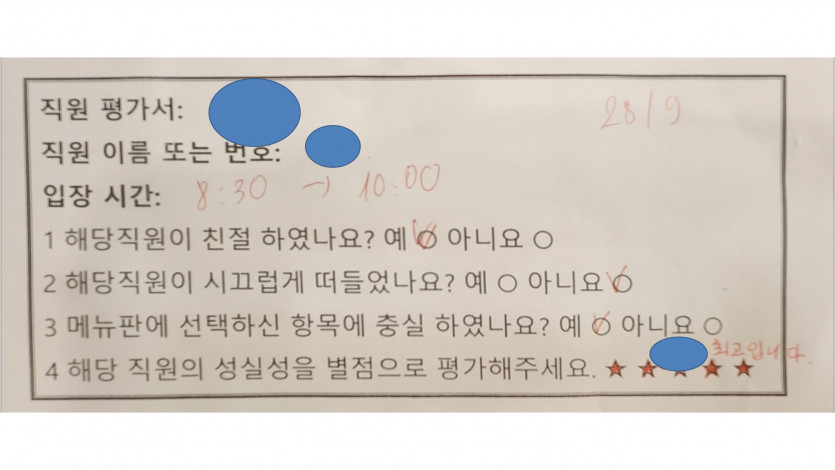 직원 평가서: 28/9
직원 이름 또는 번호:
입장 시간: 8:30 → 10:00
1 해당직원이 친절 하였나요? 예 ○ 아니요 ○
2 해당직원이 시끄럽게 떠들었나요? 예 ○ 아니요 ○
3 메뉴판에 선택하신 항목에 충실 하였나요? 예 ○ 아니요 ○
최고입니다.
4 해당 직원의 성실성을 별점으로 평가해주세요. ★ ★ ★ ★ ★